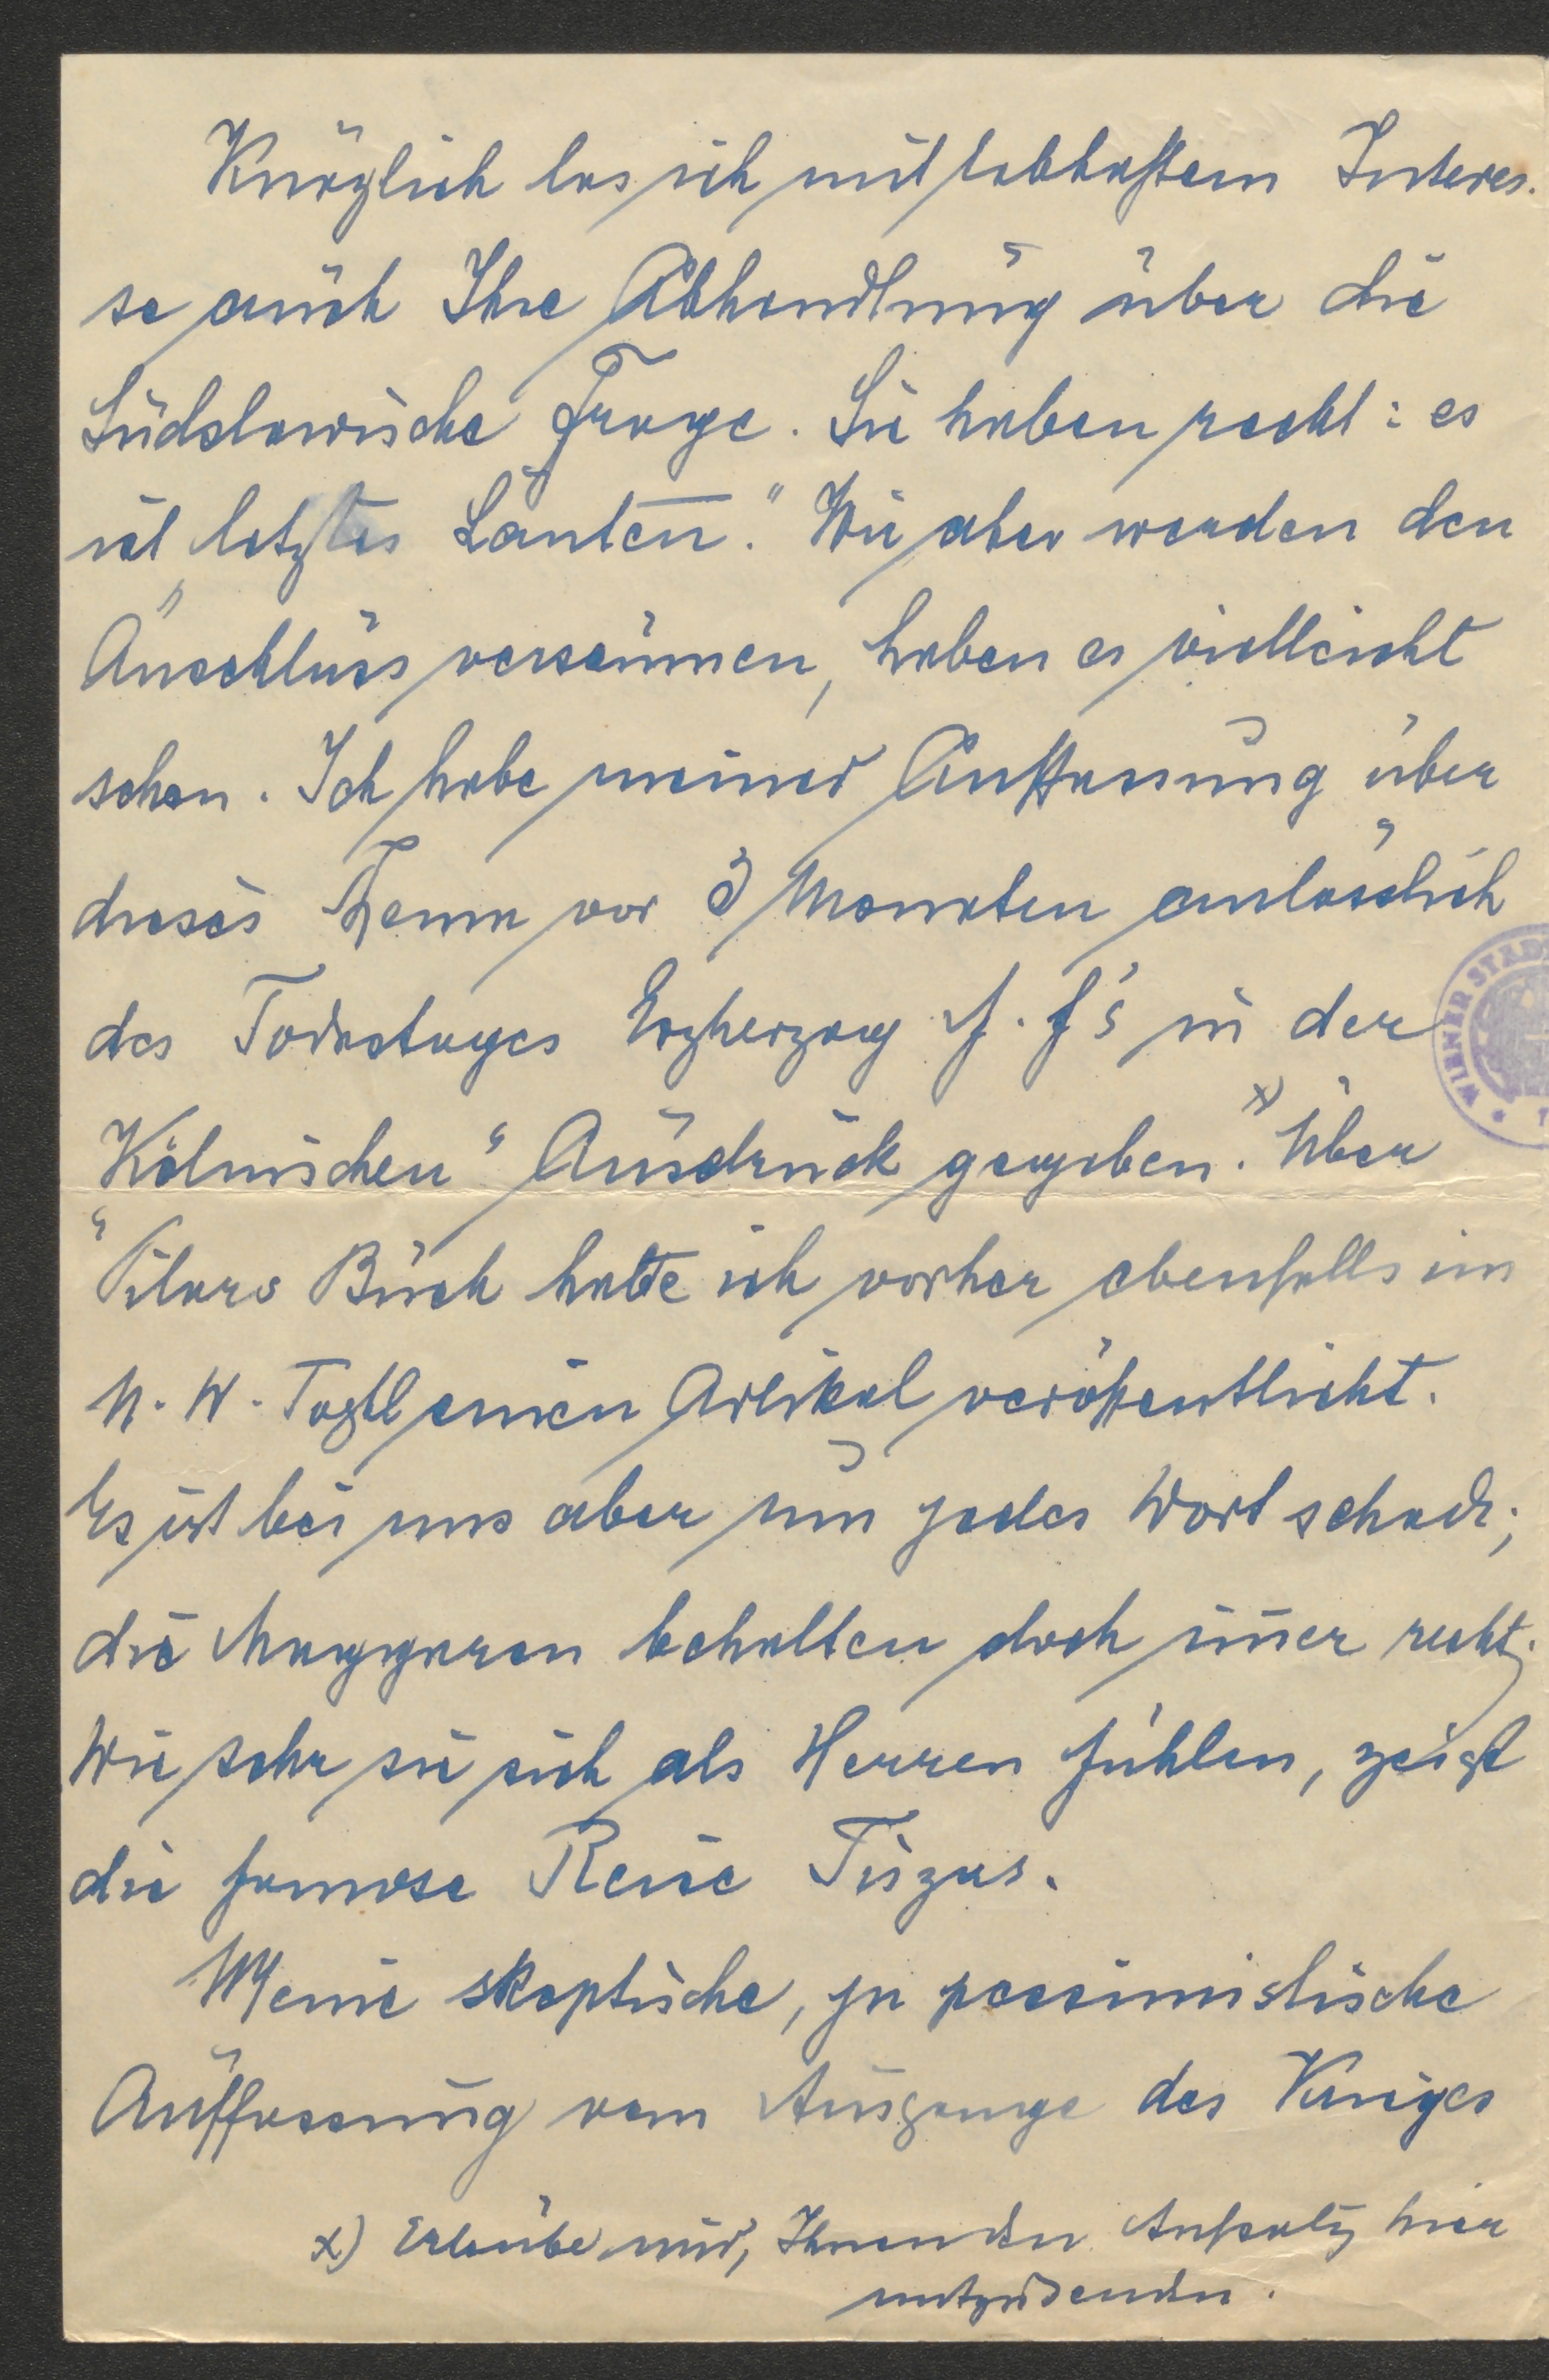 Kürzlich las ich mit lebhaftem Interes-
se auch Ihre Abhandlung über die
Südslawische Frage. Sie haben recht: es
ist „letztes Läuten." Wir aber werden den
Anschluss versäumen, haben es vielleicht
schon. Ich habe meiner Auffassung über
dieses Tema vor 3 Monaten anlässlich
des Todestages Erzherzog F. F's in der
„Kölnischen" Ausdruck gegeben. x) Über
Pilars Buch hatte ich vorher ebenfalls im
N. W. Tagbl einen Artikel veröffentlicht.
Es ist bei uns aber um jedes Wort schade;
die Magyaren behalten doch im̄er recht.
Wie sehr sie sich als Herren fühlen, zeigt
die famose Reise Tiszas.
Meine skeptische, ja pessimistische
Auffassung vom Ausgange des Krieges
x) Erlaube mir, Ihnen den Aufsatz hier
mitzusenden.
WIENER STAD